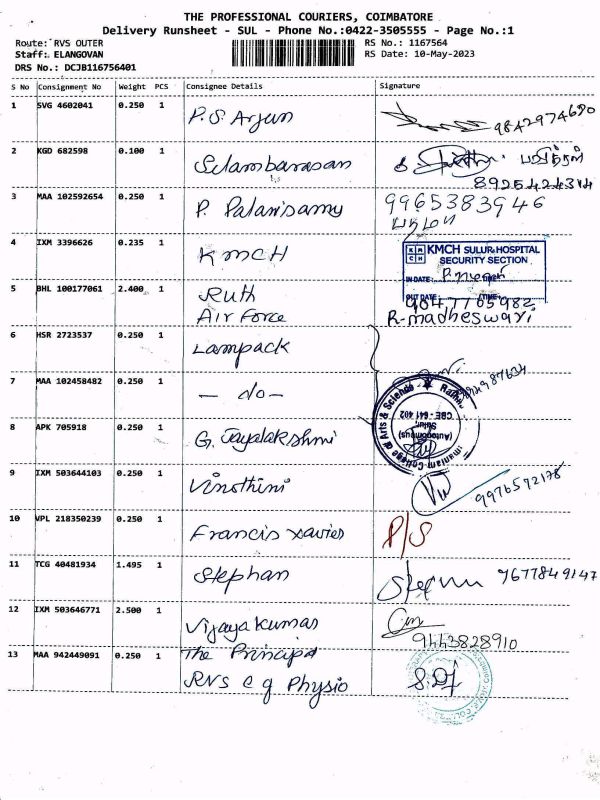 THE PROFESSIONAL COURIERS, COIMBATORE
Delivery Runsheet - SUL - Phone No.:0422-3505555 - Page No.:1
Route: RVS OUTER
RS No.: 1167564
Staff: ELANGOVAN
RS Date: 10-May-2023
DRS No.: DCJB116756401
S No Consignment No Weight PCS Consignee Details Signature
1 SVG 4602041 0.250 1 P.S Arjun 9842974690
2 KGD 682598 0.100 1 Selambarasan
8925424314
3 MAA 102592654 0.250 1 P. Palanisamy 9965383946
4 IXM 3396626 0.235 1 KMCH
KMCH SULUR HOSPITAL
SECURITY SECTION
IN DATE:
OUT DATE: TIME:
5 BHL 100177061 2.400 1 Ruth 9847765982
Air Force R-madheswari
6 HSR 2723537 0.250 1 Lampack
7 MAA 102458482 0.250 1 - do -
8 APK 705918 0.250 1 G. Jayalakshmi
College of Arts & Science
(Autonomous)
Sulur,
CBE - 641 402
9 IXM 503644103 0.250 1 Vinothini 9976572178
10 VPL 218350239 0.250 1 Francis xavier P/S
11 TCG 40481934 1.495 1 Stephan 9677849147
12 IXM 503646771 2.500 1 Vijayakumar 9443828910
13 MAA 942449091 0.250 1 The Principal
RVS C g Physio